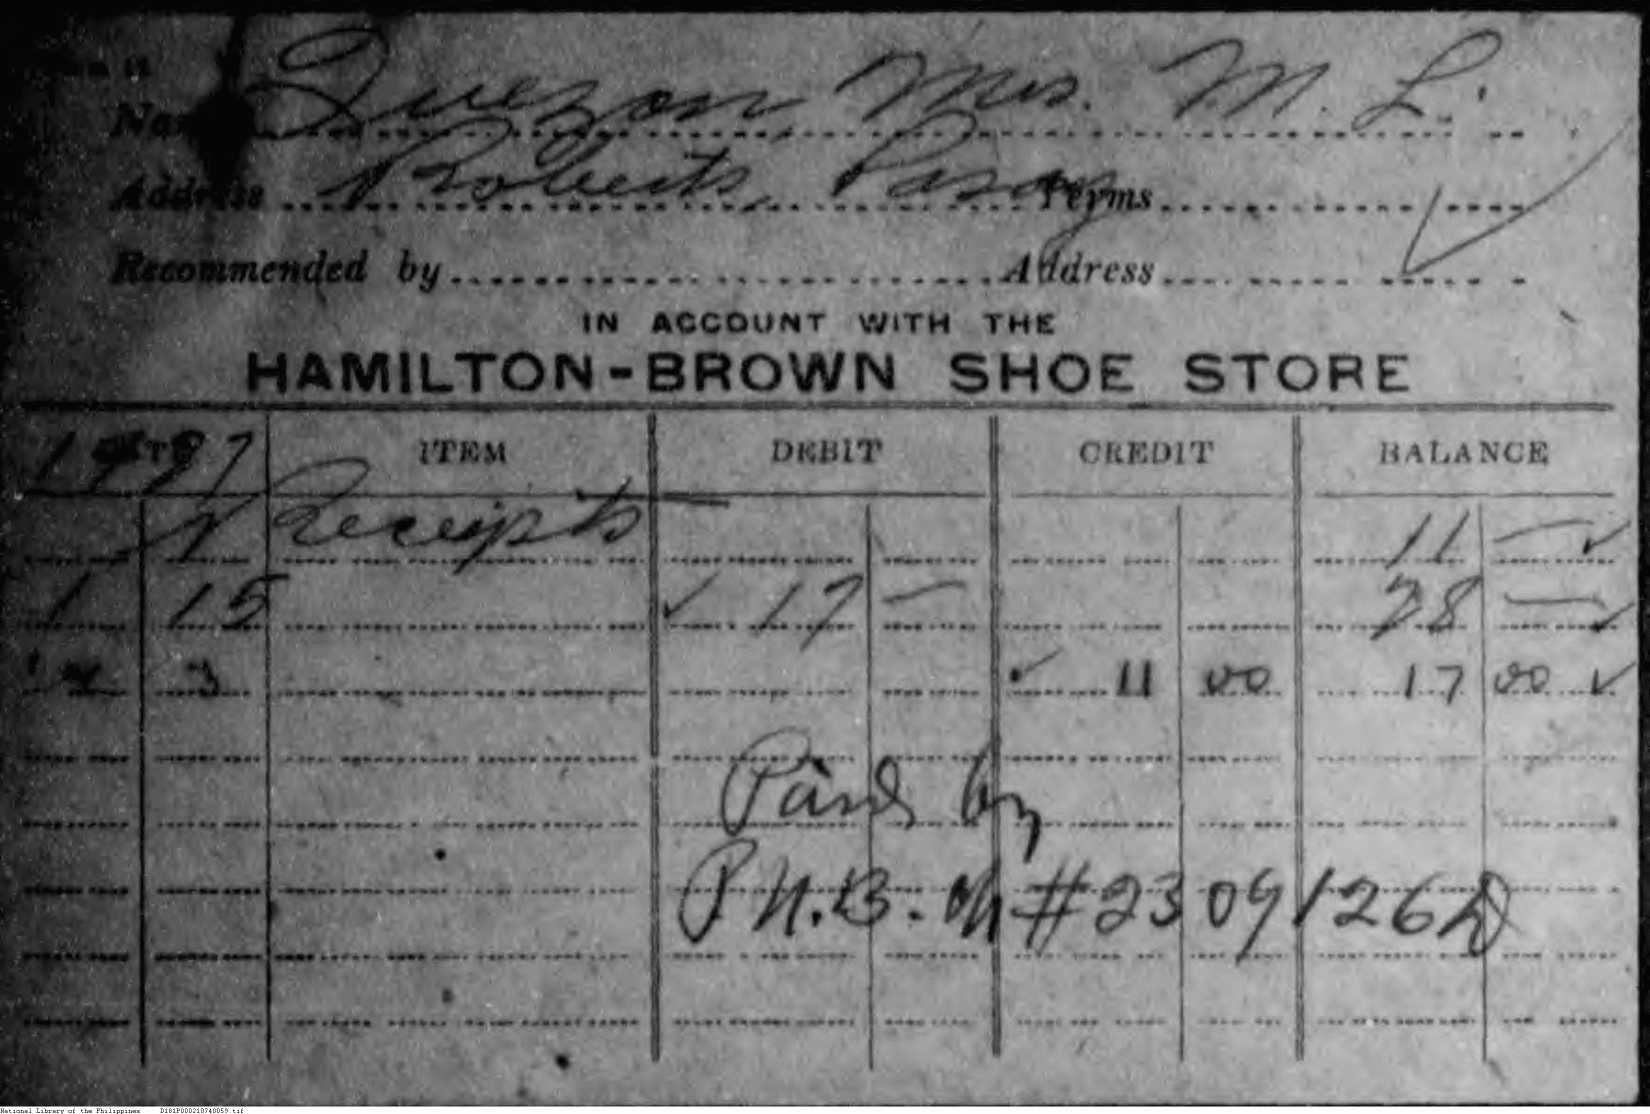 Name Quezon, Mrs. M. L.
Address Roberts, Pasay Terms
Recommended by Address
IN ACCOUNT WITH THE
HAMILTON-BROWN SHOE STORE
ITEM DEBIT CREDIT BALANCE
Receipts 11 — ✓
1 15 ✓ 17 — 28 — ✓
3 ✓ 11 00 17 00 ✓
Paid by
P.N.B. Ch #2309126D
National Library of the Philippines D181P000210740059.tif